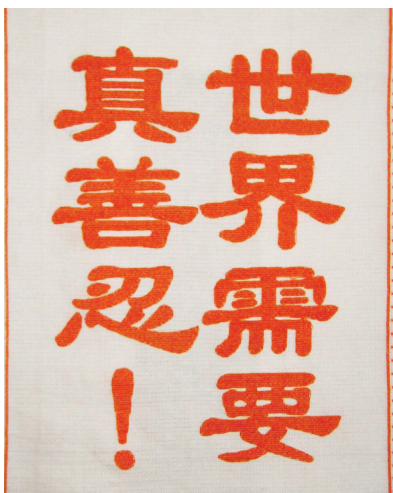 世界需要
真善忍！